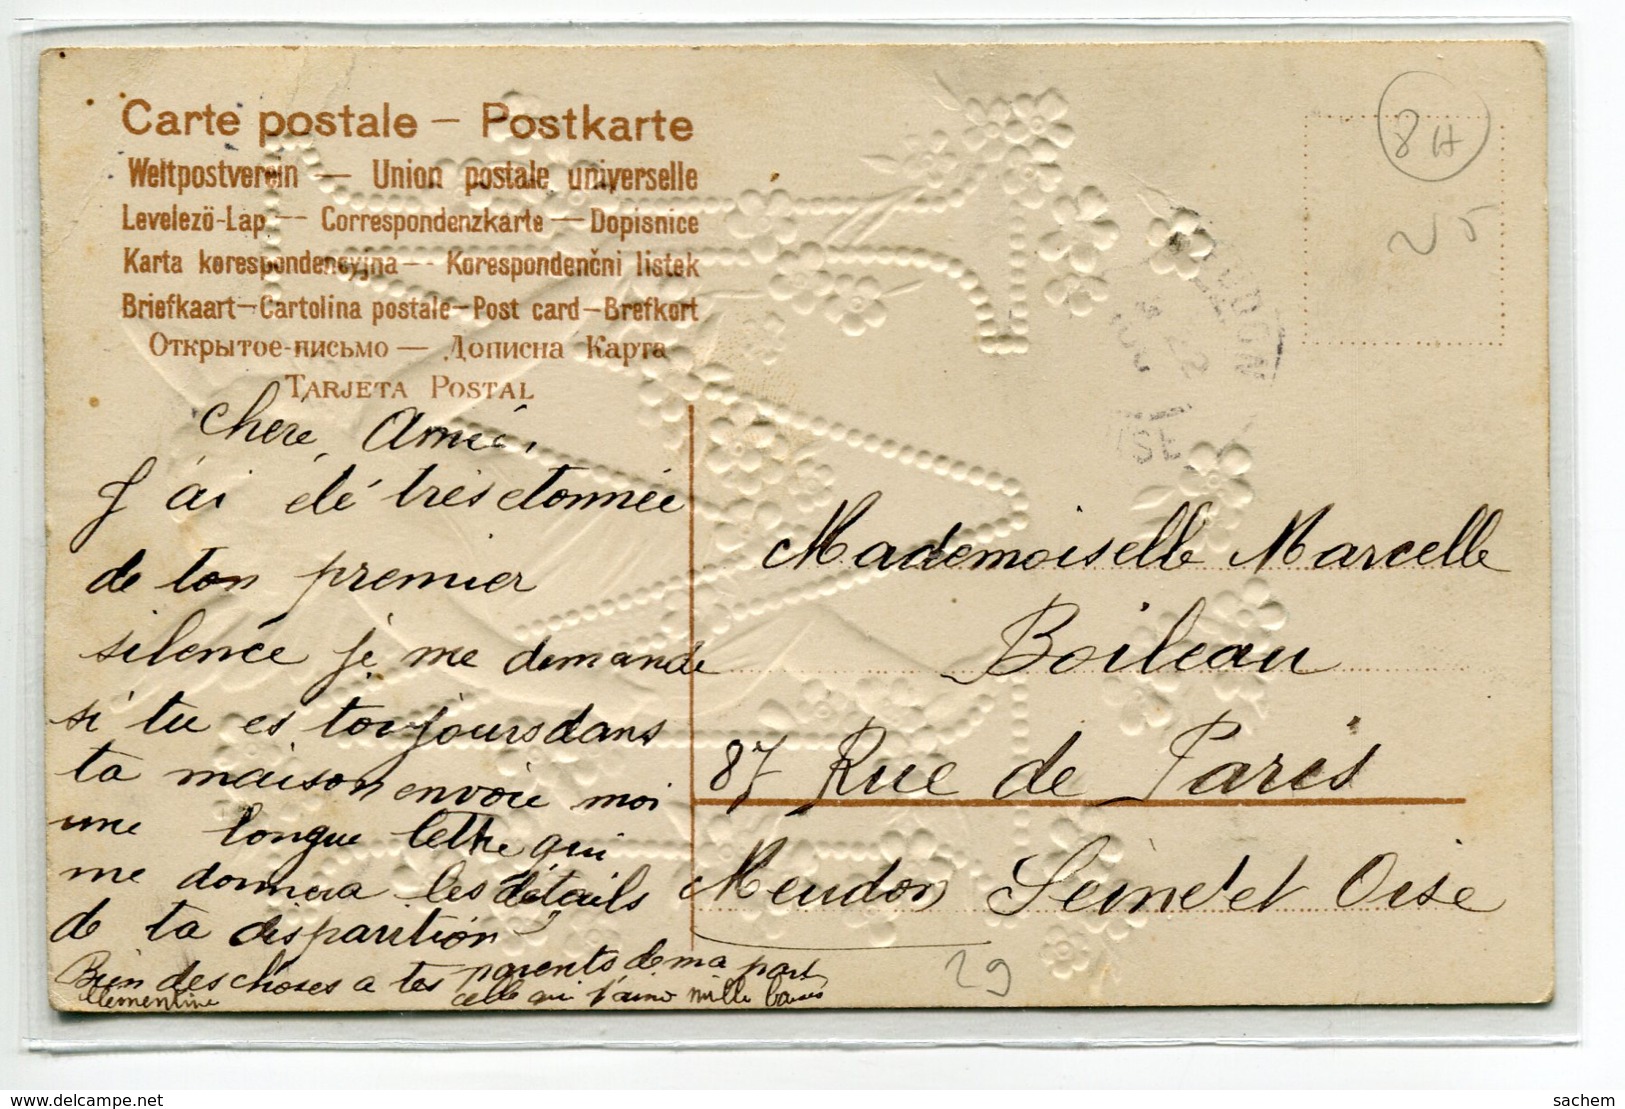 Carte postale – Postkarte
Weltpostverein — Union postale universelle
Levelezö-Lap — Correspondenzkarte — Dopisnice
Karta korespondencyjna — Korespondenčni listek
Briefkaart — Cartolina postale — Post card — Brefkort
Открытое-письмо — Дописна Карта
TARJETA POSTAL
8H
25
chère Amie,
J'ai été très etonnée
de ton premier
silence je me demande
si tu es toujours dans
ta maison envoie moi
une longue lettre qui
me donnera les détails
de ta disparition
Bien des choses a tes parents de ma part
celle qui t'aime mille baisers
clementine
Mademoiselle Marcelle
Boileau
87 Rue de Paris
Meudon Seine et Oise
29
delcampe.net
sachem